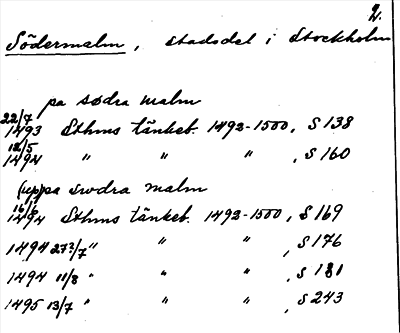 2.
Södermalm, stadsdel i Stockholm
pa sødra malm
22/7 1493 Sthms tänkeb. 1492-1500, S 138
12/5 1494 " " " , S 160
(upp)pa swdra malm
16/6 1494 Sthms tänkeb. 1492-1500, S 169
1494 27?/7 " " " , S 176
1494 11/8 " " " , S 181
1495 13/7 " " " , S 243